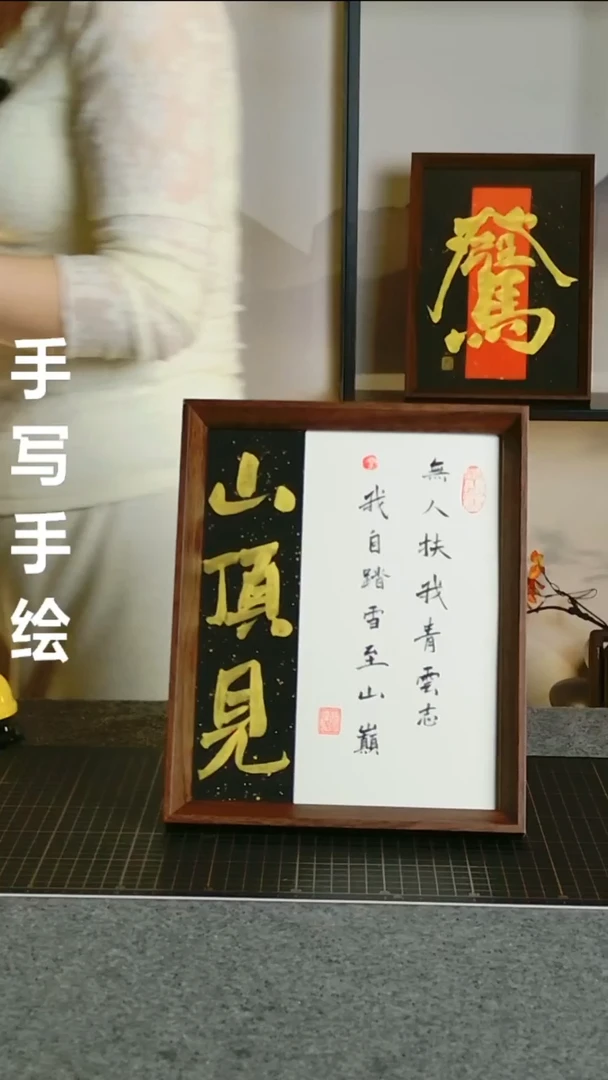 手写手绘
山頂見
無人扶我青雲志
我自踏雪至山巔